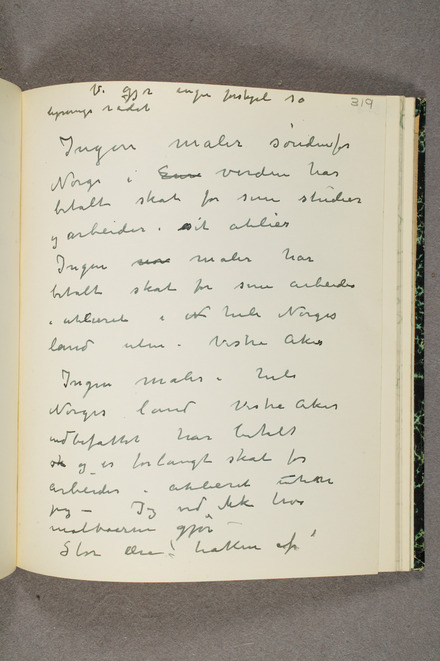 Vi gjør ingen forskjel so
lignings rådet
319
Ingen maler søndenfor
Norge i verden har
betalt skat for sine studier
og arbeider i sit atelier
Ingen maler har
betalt skat for sine arbeider
i atelieret i hele Norges
land uten i Vestre Aker
Ingen maler i hele
Norges land Vestre Aker
indbefattet har betalt
og er forlangt skat for
arbeider i atelieret uten
jeg – Jeg ved ikke hvad
malerne gjør –
Stor ære! hatten af!